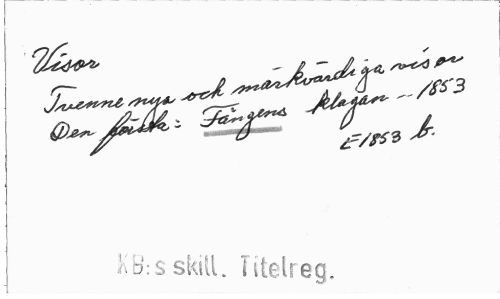 Visor
Tvenne nya och märkvärdiga visor
Den första: Fångens klagan -- 1853
E1853 b.
KB:s skill. Titelreg.